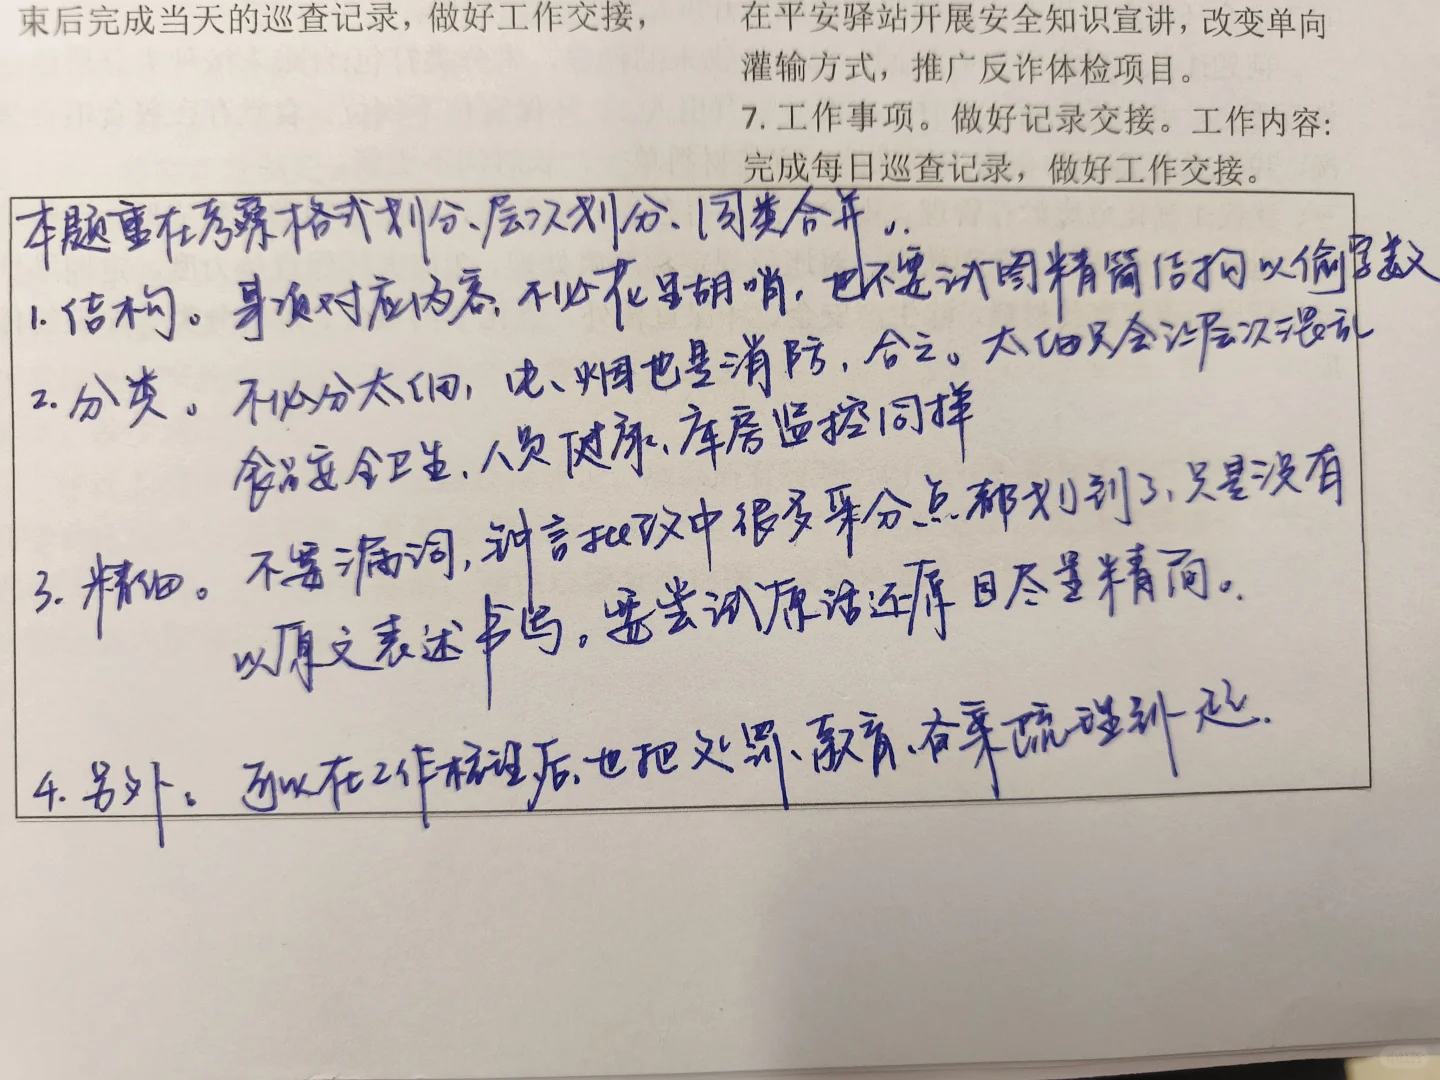 束后完成当天的巡查记录，做好工作交接，
在平安驿站开展安全知识宣讲，改变单向
灌输方式，推广反诈体检项目。
7. 工作事项。做好记录交接。工作内容:
完成每日巡查记录，做好工作交接。
本题重在考察格式划分、层次划分、同类合并。
1. 结构。事项对应内容，不必花里胡哨，也不要试图精简结构以偷字数
2. 分类。不必分太细，电、烟也是消防，合之。太细只会让层次混乱
食品安全卫生，人员健康、库房监控同样
3. 精细。不要漏词，钟言批改中很多采分点都划到了，只是没有
以原文表述书写。要尝试原话还原且尽量精简。
4. 另外。可以在工作梳理后，也把处罚、教育、台梳理到一起.